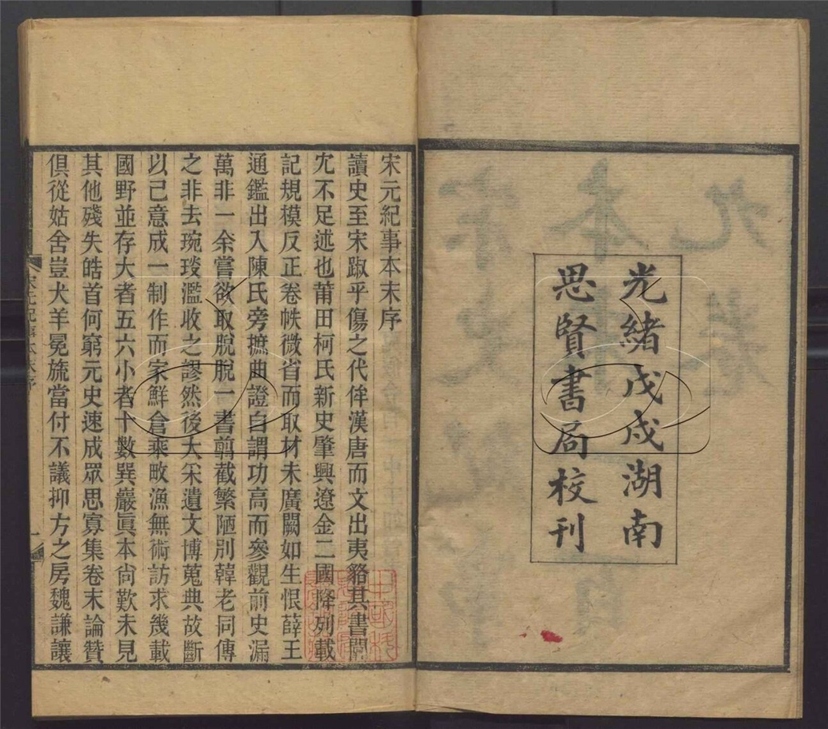 光緒戊戌湖南
思賢書局校刊
宋元紀事本末序
讀史至宋踧乎傷之代侔漢唐而文出夷貉其書闒
冗不足述也莆田柯氏新史肇興遼金二國降列載
記規模反正卷帙微省而取材未廣闕如生恨薛王
通鑑出入陳氏旁摭曲證自謂功高而參觀前史漏
萬非一余嘗欲取脫脫一書翦截繁陋別韓老同傳
之非去琬琰濫收之謬然後大采遺文博蒐典故斷
以己意成一制作而家鮮倉乘畋漁無術訪求幾載
國野並存大者五六小者十數巽巖眞本尙歎未見
其他殘失皓首何窮元史速成眾思寡集卷末論贊
俱從姑舍豈犬羊冕旒當付不議抑方之房魏謙讓
宋元紀事本末序
一